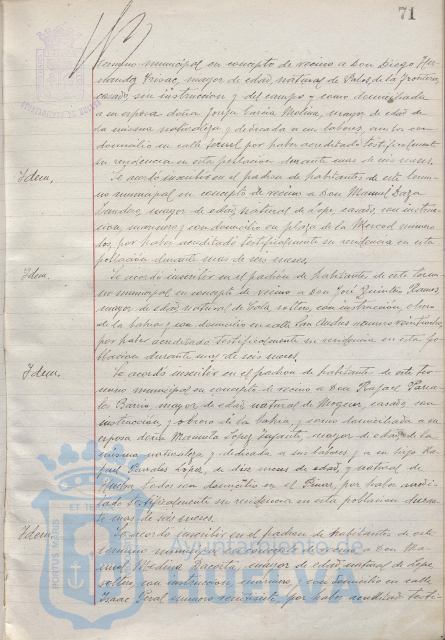 71
término municipal en concepto de vecino a Don Diego Her-
nandez mayor de edad, natural de Palos de la Frontera
casado, sin instruccion y del campo y como domiciliada
a su esposa doña Josefa Garcia Molina, mayor de edad de
la misma naturaleza y dedicada a sus labores, ambos con
domicilio en calle por haber acreditado testificalmente
su residencia en esta poblacion durante mas de seis meses.
Idem. Se acordó inscribir en el padron de habitantes de este termi-
no municipal en concepto de vecino a Don Manuel Daza
mayor de edad, natural de Lepe, casado, con instruc-
cion, marinero, con domicilio en plaza de la Merced numero
dos, por haber acreditado testificalmente su residencia en esta
poblacion durante mas de seis meses.
Idem. Se acordó inscribir en el padron de habitantes de este termi-
no municipal en concepto de vecino a Don José Quintin Ramos,
mayor de edad, natural de Cala, soltero, con instruccion, obrero
de la bahia y con domicilio en calle San Andres numero veintiocho,
por haber acreditado testificalmente su residencia en esta po-
blacion durante mas de seis meses.
Idem. Se acordó inscribir en el padron de habitantes de este ter-
mino municipal en concepto de vecino a Don Rafael Parra-
les Barrio, mayor de edad, natural de Moguer, casado, con
instruccion, y obrero de la bahia, y como domiciliada a su
esposa doña Manuela Lopez Infante, mayor de edad, de la
misma naturaleza y dedicada a sus labores y a su hijo Ra-
fael Parrales Lopez, de diez meses de edad y natural de
Huelva, todos con domicilio en el Pinar, por haber acredi-
tado testificalmente su residencia en esta poblacion duran-
te mas de seis meses.
Idem. Se acordó inscribir en el padron de habitantes de este
termino municipal en concepto de vecino a Don Ma-
nuel Medina mayor de edad, natural de Lepe
soltero, con instruccion, marinero, y con domicilio en calle
Isaac Peral numero veintisiete, por haber acreditado testi-
PORTUS MARIS
ET TE
Ayuntamiento de